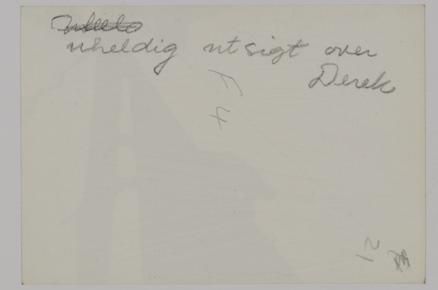 uheldig utsigt over
Derek
F 4
12